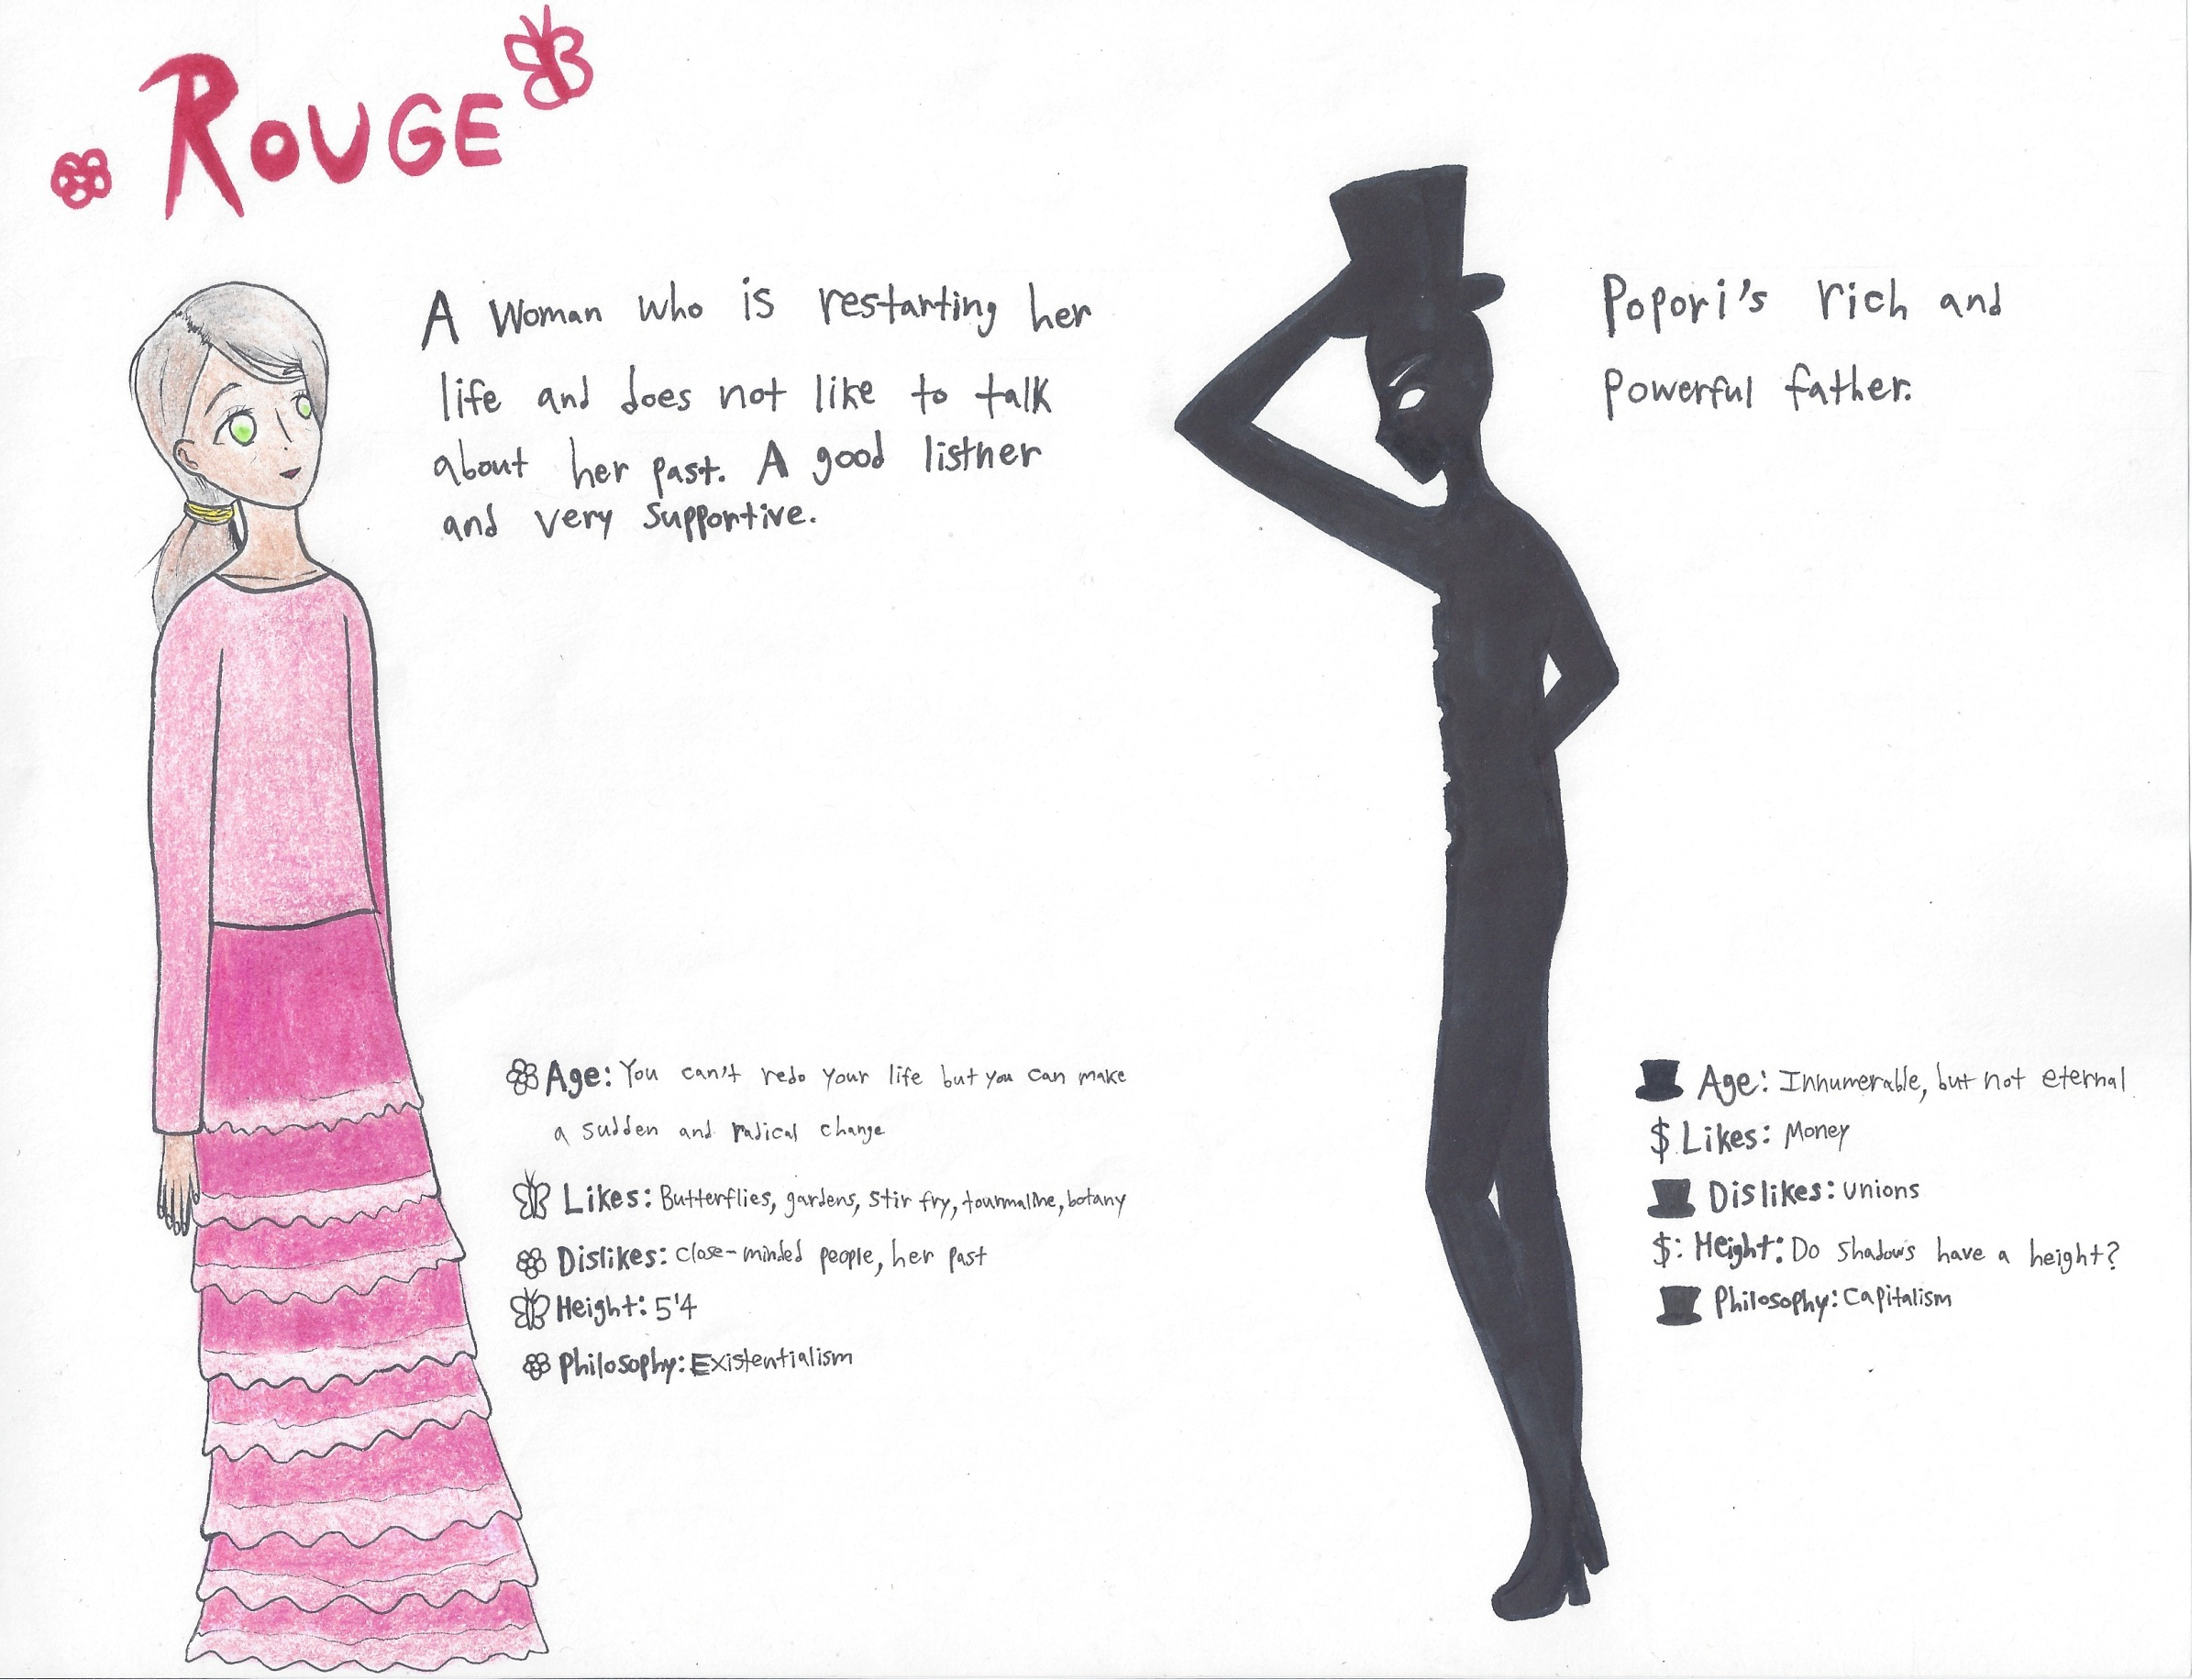 ROUGE
A Woman who is restarting her
life and does not like to talk
about her past. A good listner
and very supportive.
Age: You can't redo your life but you can make
a sudden and radical change
Likes: Butterflies, gardens, stir fry, tourmaline, botany
Dislikes: close-minded people, her past
Height: 5'4
Philosophy: Existentialism
Popori's rich and
powerful father.
Age: Innumerable, but not eternal
$ Likes: Money
Dislikes: unions
$: Height: Do shadows have a height?
Philosophy: Capitalism